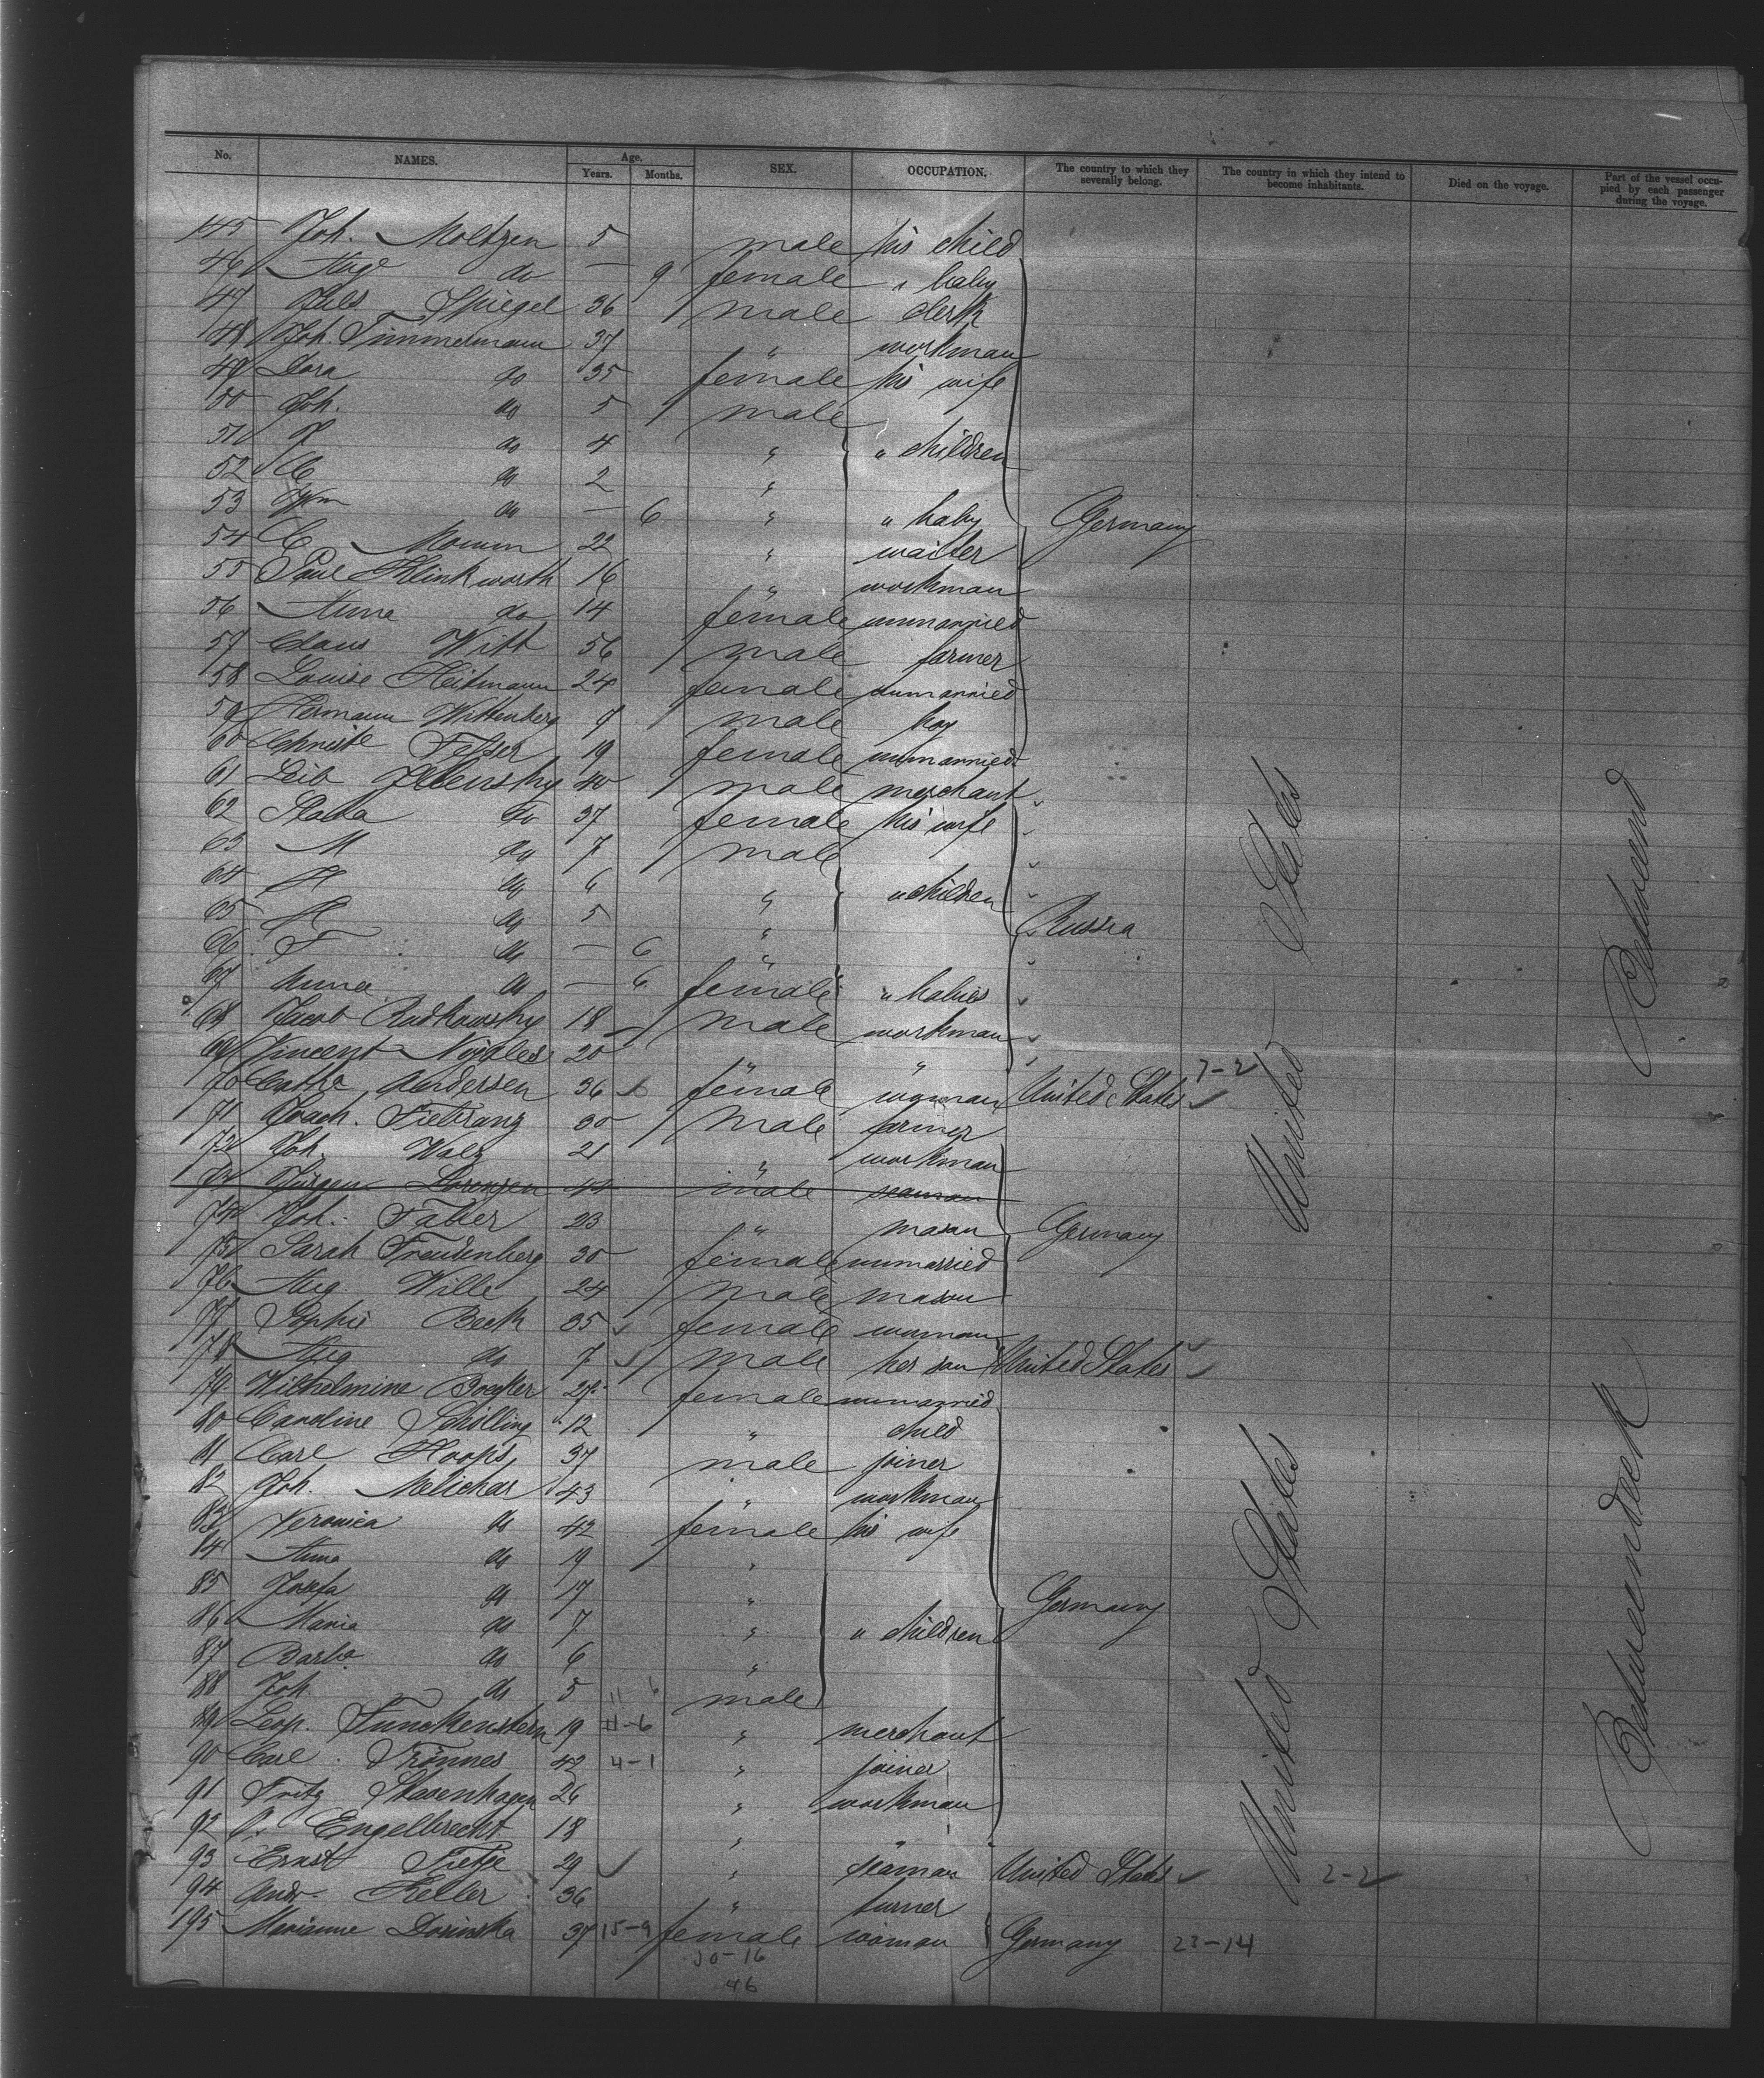 No. NAMES. Age. Years. Months. SEX. OCCUPATION. The country to which they severally belong. The country in which they intend to become inhabitants. Died on the voyage. Part of the vessel occupied by each passenger during the voyage.
145 Joh. Moltzen 5 male his child
46 do — 9 female " baby
47 Spiegel 36 male clerk
48 Joh. Timmermann 37 " workman
49 Dora do 35 female his wife
50 Joh. do 5 male
51 do 4 " " children
52 C do 2 "
53 Wm do — 6 " " baby Germany
54 C 22 " waiter
55 Paul Klinkworth 16 " workman
56 Anna do 14 female unmarried
57 Claus Witt 56 male farmer
58 Louise Heitmann 24 female unmarried
59 Hermann Wittenberg 9 male boy
60 19 female unmarried
61 Leib 40 male merchant
62 do 37 female his wife
63 M do 7 male
64 do 6 " " children
65 do 5 " Russia
66 F do — 6 "
67 Anna do — 6 female " babies
68 Jacob Radkowsky 18 male workman
69 Vincent 20 " "
70 Cathe Andersen 36 female woman United States 7-2
71 Joach. 30 male farmer
72 Joh. Walz 21 " workman
73 Jürgen Lorenzen 44 male seaman
74 Joh. Faber 23 " mason Germany
75 Sarah Freudenberg 30 female unmarried
76 Aug. Wille 24 male mason
77 Sophie Beck 35 female woman
78 Aug do 7 male her son United States
79 Wilhelmine female unmarried
80 Caroline Schilling 12 " child
81 Carl Hoops 37 male joiner
82 Joh. Melichar 43 " workman
83 Veronica do 42 female his wife
84 Anna do 19 "
85 Josefa do 17 " Germany
86 Maria do 7 " " children
87 Barba do 6 "
88 Joh. do 5 male
89 Leop. Funckenstein 19 11-6 " merchant
90 Carl Trönnes 42 4-1 " joiner
91 Fritz Stasenhagen 26 " workman
92 Engelbrecht 18 " "
93 Ernst Tietze 29 " seaman United States 2-2
94 Andr. Keller 36 " turner
195 Marianne 37 15-9 female woman Germany 23-14
30-16
46
United States
United States
Betweendeck